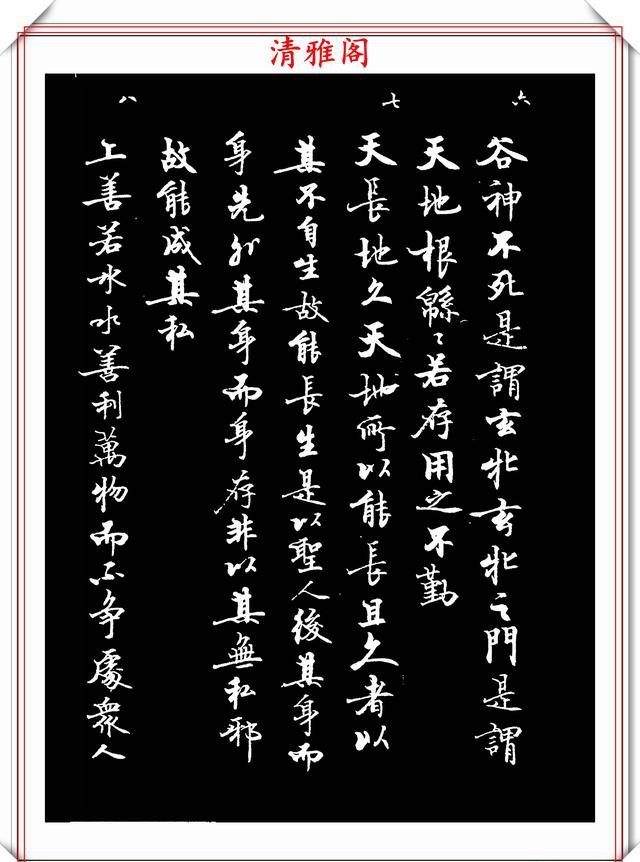 清雅阁
六
谷神不死是謂玄牝玄牝之門是謂
天地根緜〻若存用之不勤
七
天長地久天地所以能長且久者以
其不自生故能長生是以聖人後其身而
身先外其身而身存非以其無私邪
故能成其私
八
上善若水水善利萬物而不争處衆人